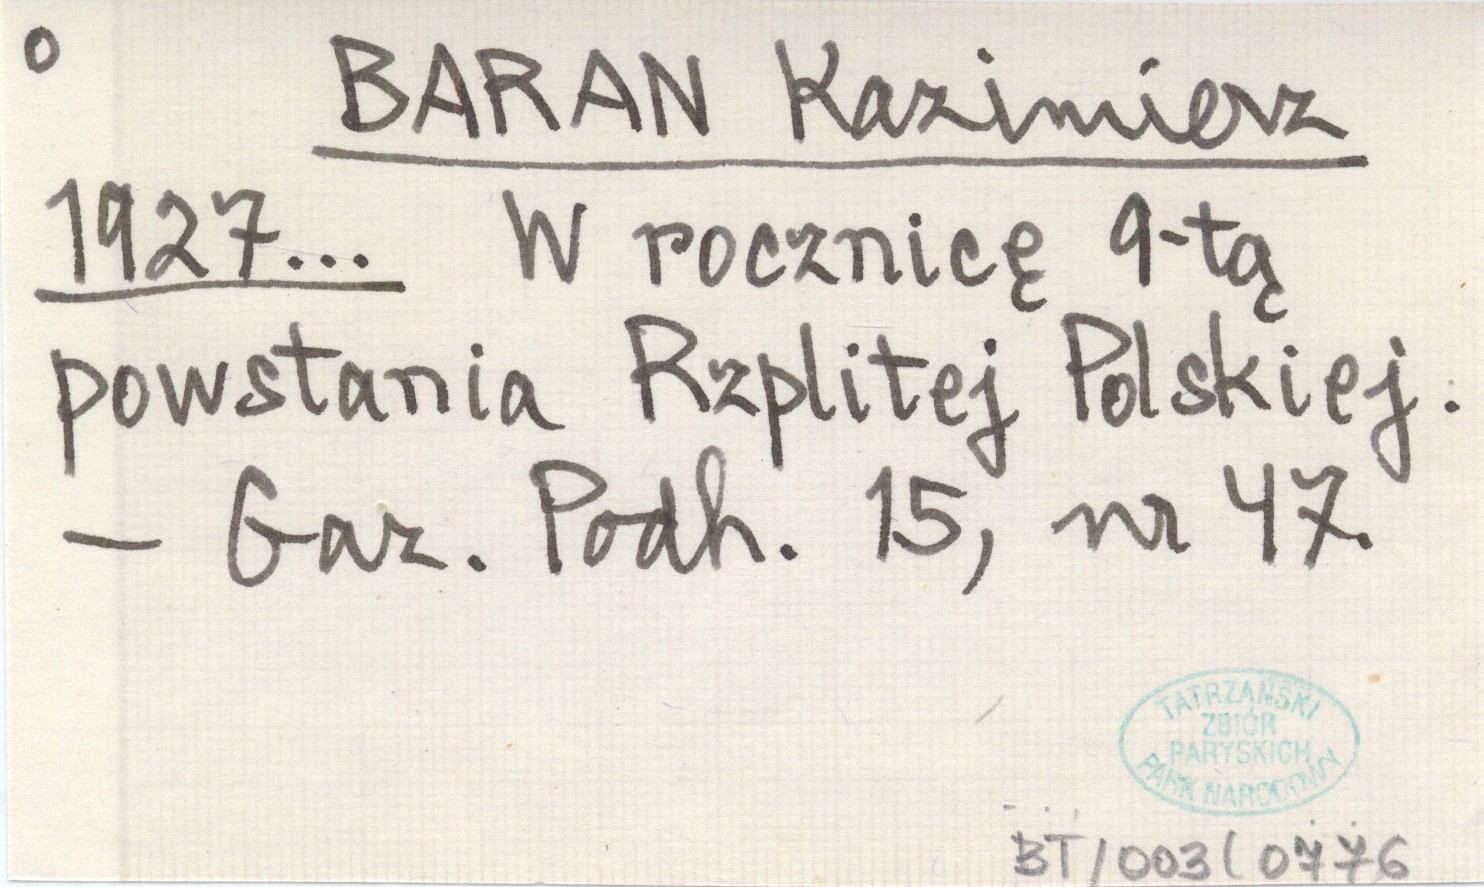 o
BARAN Kazimierz
1927... W rocznicę 9-tą
powstania Rzplitej Polskiej.
— Gaz. Podh. 15, nr 47.
TATRZAŃSKI
ZBIÓR
PARYSKICH
PARK NARODOWY
BT/003(0776